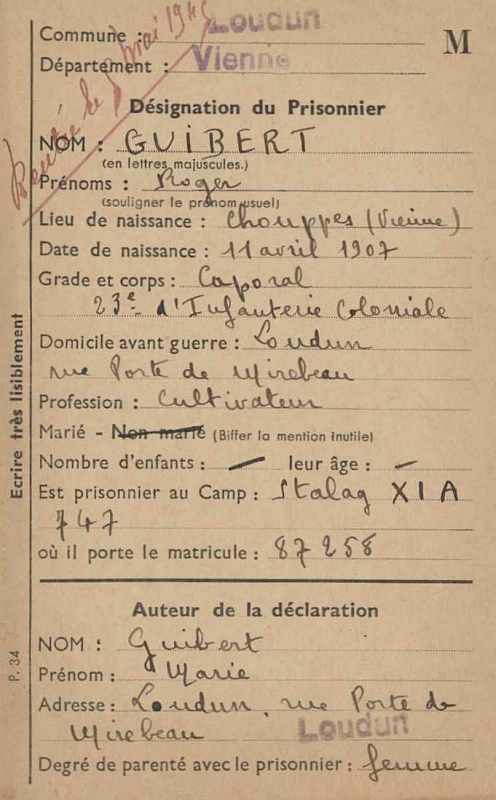 Rentré le 8 mai 1945
Commune : Loudun
Département : Vienne
M
Désignation du Prisonnier
NOM : GUIBERT
(en lettres majuscules.)
Prénoms : Roger
(souligner le prénom usuel)
Lieu de naissance : Chouppes (Vienne)
Date de naissance : 11 avril 1907
Grade et corps : Caporal
23e d'Infanterie Coloniale
Domicile avant guerre : Loudun
rue Porte de Mirebeau
Profession : Cultivateur
Marié - Non marié (Biffer la mention inutile)
Nombre d'enfants : — leur âge : —
Est prisonnier au Camp : Stalag XI A
747
où il porte le matricule : 87258
Ecrire très lisiblement
Auteur de la déclaration
NOM : Guibert
Prénom : Marie
Adresse : Loudun, rue Porte de
Mirebeau
Loudun
Degré de parenté avec le prisonnier : femme
P. 34